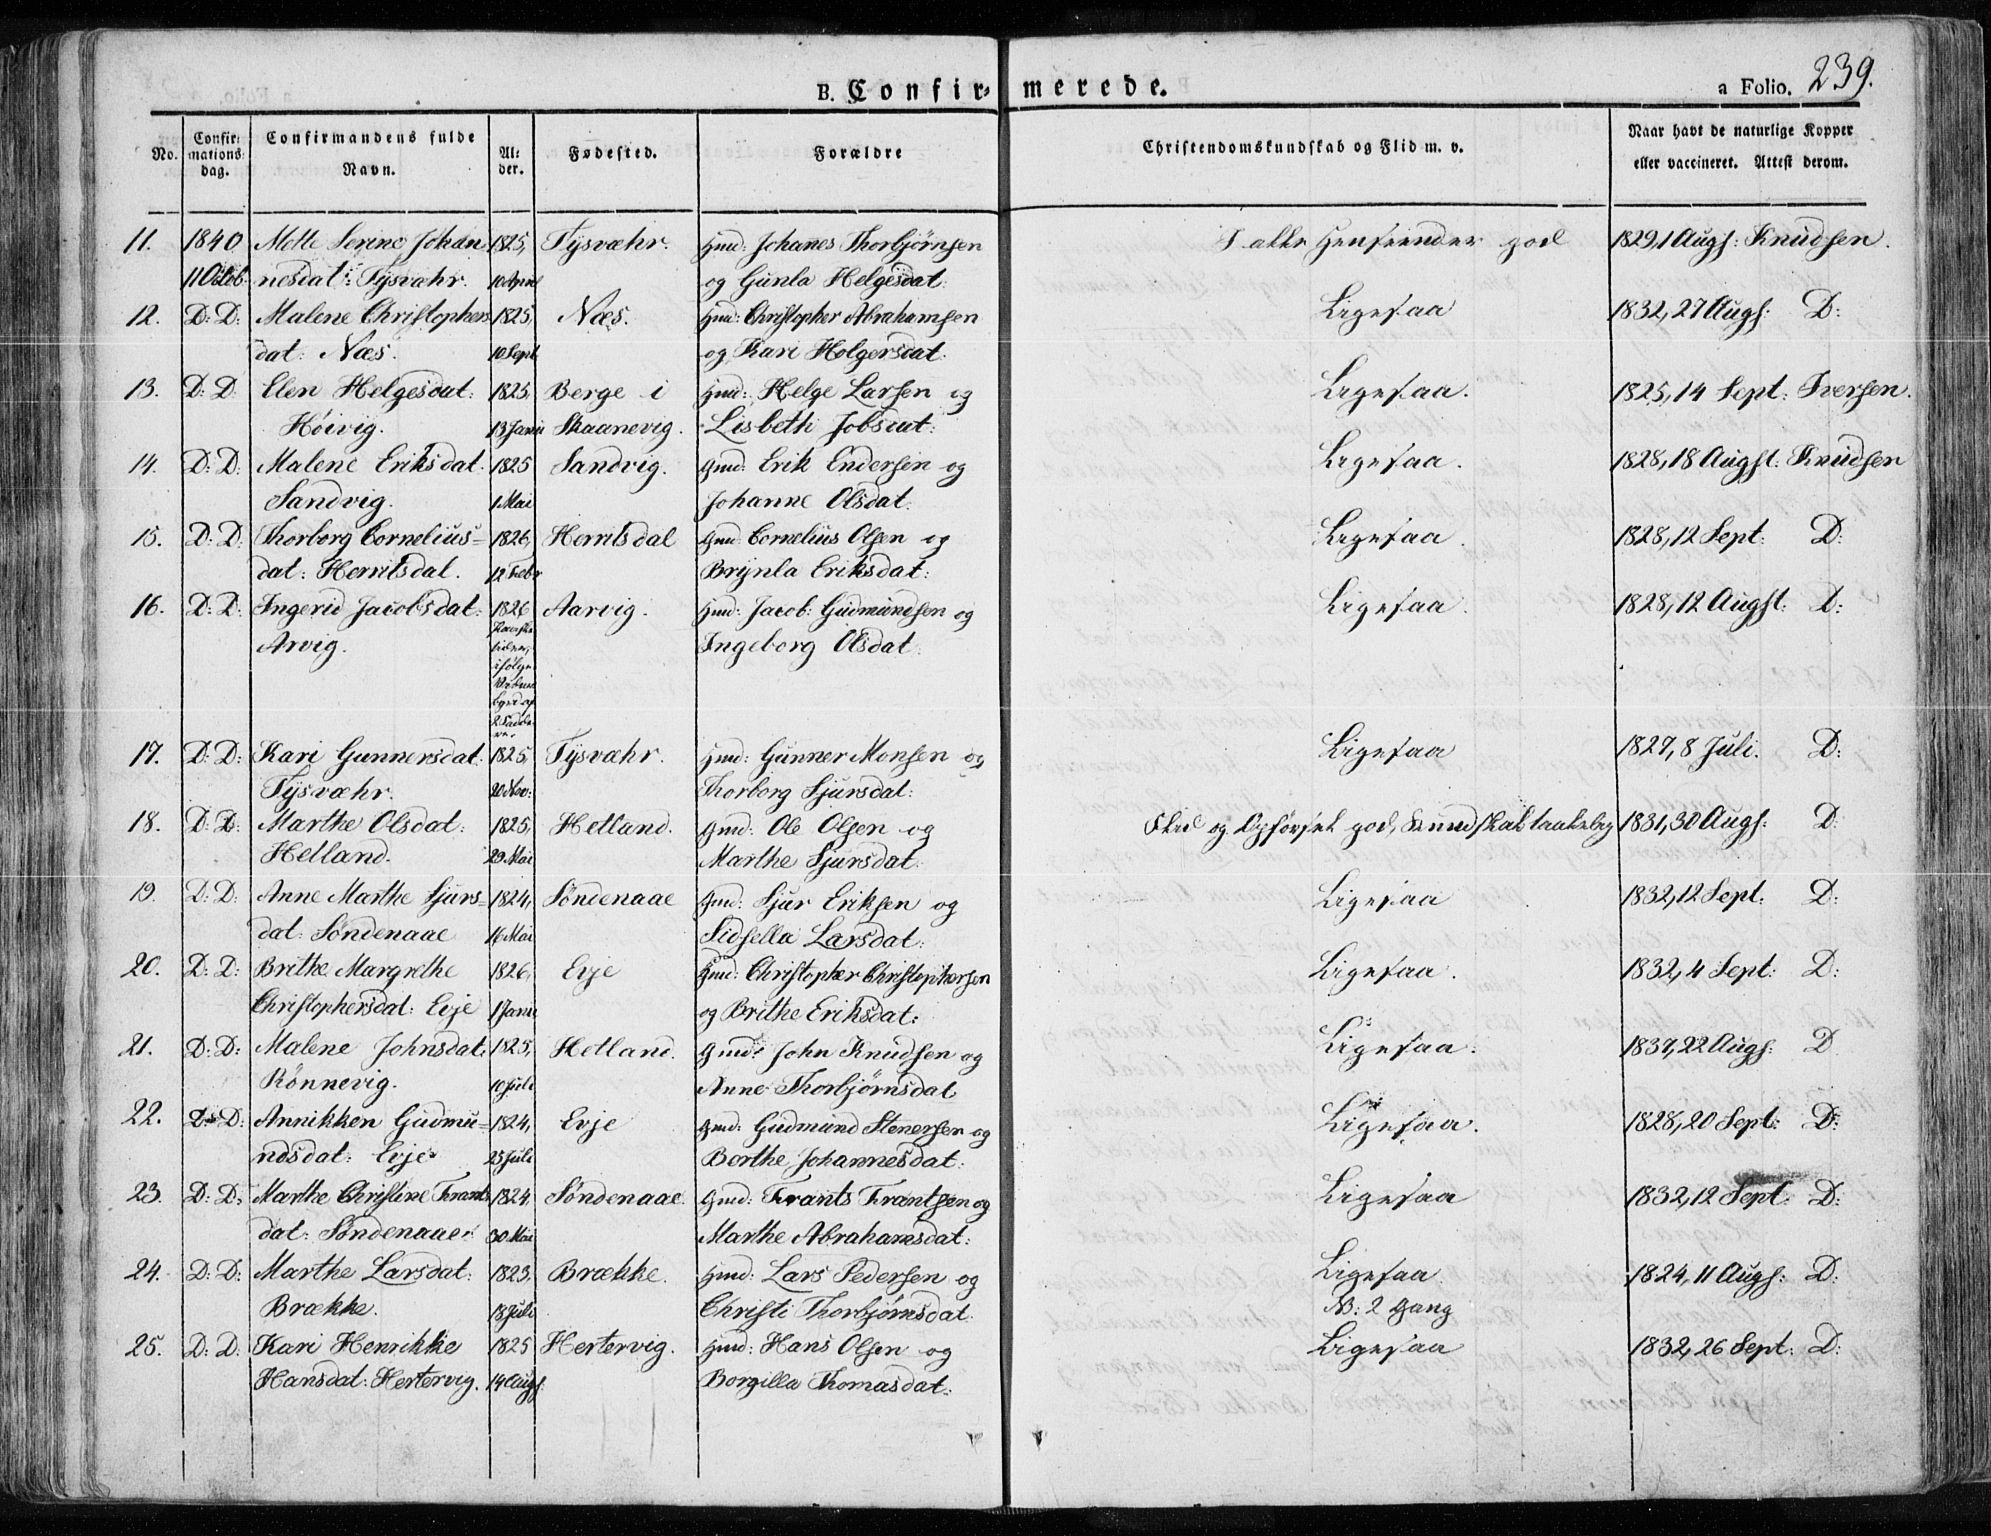 B. Confir- merede. a Folio. 239.
No. Confir: mations dag. Confirmandens fulde Navn. Al: der. Fødested. Forældre Christendomskundskab og Flid m. v. Naar havt de naturlige Kopper eller vaccineret. Attest derom.
11. 1840 Mette Serine Johan 1825, Tysvæhr. Gmd: Johanes Thorbjørnsen I alle Henseender god 1829, 1 Augs: Knudsen.
11 Octob nesdat: Tysvæhr. 10 April og Gunla Helgesdat:
12. D: D: Malene Christophers 1825, Næs. Gmd: Christopher Abrahamsen Ligesaa 1832, 27 Augs: D:
dat: Næs. 10 Sept og Kari Holgersdat:
13. D: D Elen Helgesdat: 1825, Berge i Gmd: Helge Larsen og Ligesaa. 1825, 14 Sept: Iversen.
Høivig. 13 Janu Skaanevig. Lisbeth Jobsdat:
14. D: D: Malene Eriksdat: 1825 Sandvig. Gmd: Erik Endersen og Ligesaa. 1828, 18 Augst: Knudsen
Sandvig. 1 Mai Johanne Olsdat:
15. D: D: Thorborg Cornelius- 1826, Herritsdal Gmd Cornelius Olsen og Ligesaa. 1828, 12 Sept: D:
dat: Herritsdal. 12 Febr Brynla Eriksdat:
16. D: D: Ingerid Jacobsdat: 1826 Aarvig. Gmd: Jacob: Gudmundsen og Ligesaa. 1828, 12 Augst: D:
Arvig. Ingeborg Olsdat:
17. D: D: Kari Gunnersdat: 1825, Tysvæhr. Gmd: Gunner Monsen og Ligesaa 1827, 8 Juli. D:
Tysvæhr. 20 Nov: Thorborg Sjursdat:
18. D: D: Marthe Olsdat: 1825, Hetland. Gmd: Ole Olsen og Flid og Opførsel god, Kundskab taalelig 1831, 30 Augs: D:
Helland. 29 Mai Marthe Sjursdat:
19. D: D: Anne Marthe Sjurs- 1824, Søndenaae Gmd: Sjur Eriksen og Ligesaa 1832, 12 Sept: D:
dat: Søndenaae 16 Mai Sidsella Larsdat:
20. D: D: Brithe Margrethe 1826, Evje Gmd: Christopher Christophersen Ligesaa. 1832, 4 Sept: D:
Christophersdat: Evje 1 Janu og Brithe Eriksdat:
21. D: D: Malene Johnsdat: 1825, Hetland. Gmd: John Knudsen og Ligesaa. 1837, 22 Augs: D
Rønnevig. 10 Juli Anne Thorbjørnsdat
22. D: D: Annikken Gudmu- 1824, Evje Gmd: Gudmund Stenersen og Ligesaa. 1828, 20 Sept: D:
ndsdat: Evje 25 Juli Borthe Johannesdat:
23. D: D: Marthe Christine Frants 1824. Søndenaae. Gmd: Frants Frantsen og Ligesaa 1832, 12 Sept: D:
dat: Søndenaae. 30 Mai Marthe Abrahamsdat:
24. D: D: Marthe Larsdat: 1823. Brække. Gmd: Lars Pedersen og Ligesaa 1824, 11 Augs: D:
Brække. 18 Juli Christi Thorbjørnsdat. NB: 2 Gang
25. D: D. Kari Henrikke 1825 Hertervig. Gmd: Hans Olsen og Ligesaa 1832, 26 Sept: D:
Hansdat: Hertervig. 14 Augs: Borgilla Thomasdat: